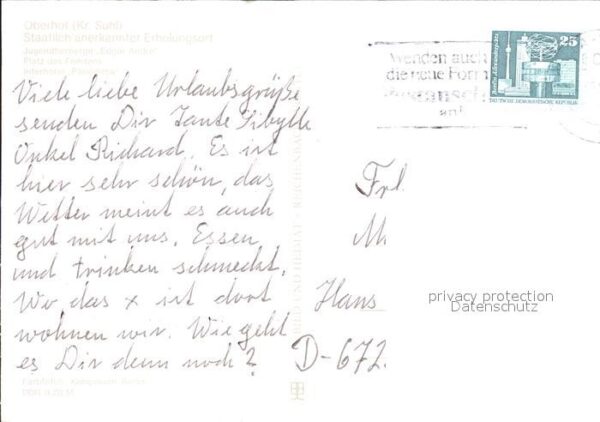 Oberhof (Kr. Suhl)
Staatlich anerkannter Erholungsort
Jugendherberge
Platz des Friedens
Interhotel „Panorama“
Viele liebe Urlaubsgrüße
senden Dir Tante Sibylle
Onkel Richard. Es ist
hier sehr schön, das
Wetter meint es auch
gut mit uns. Essen
und trinken schmeckt.
Wo das x ist dort
wohnen wir. Wie geht
es Dir denn noch?
BILD UND HEIMAT
Wenden auch
die neue Form
an!
25
DEUTSCHE DEMOKRATISCHE REPUBLIK
Frl.
M
Hans
D-672.
privacy protection
Datenschutz